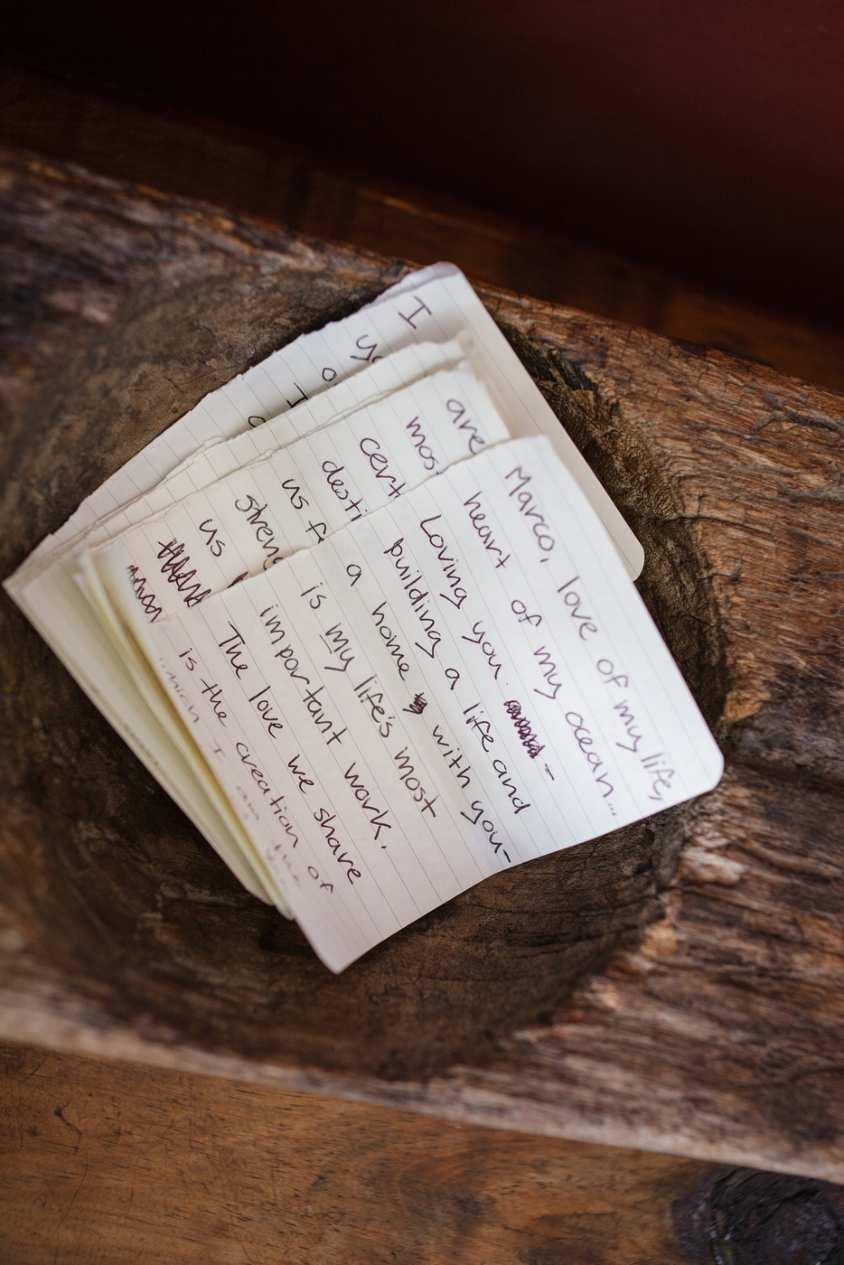 Marco, love of my life,
heart of my ocean...
Loving you -
building a life and
a home with you-
is my life's most
important work.
The love we share
is the creation of
which I am the
are
most
cert
desti
us f
streng
us
I
yo
o
I